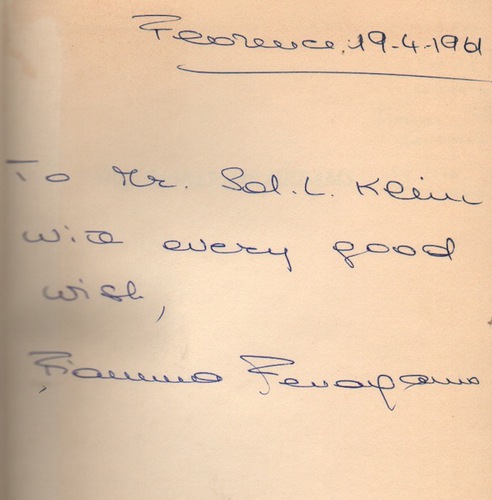 Florence, 19-4-1961
To Mr. Sol. L. Klein
with every good
wish,
Fiamma Ferragamo